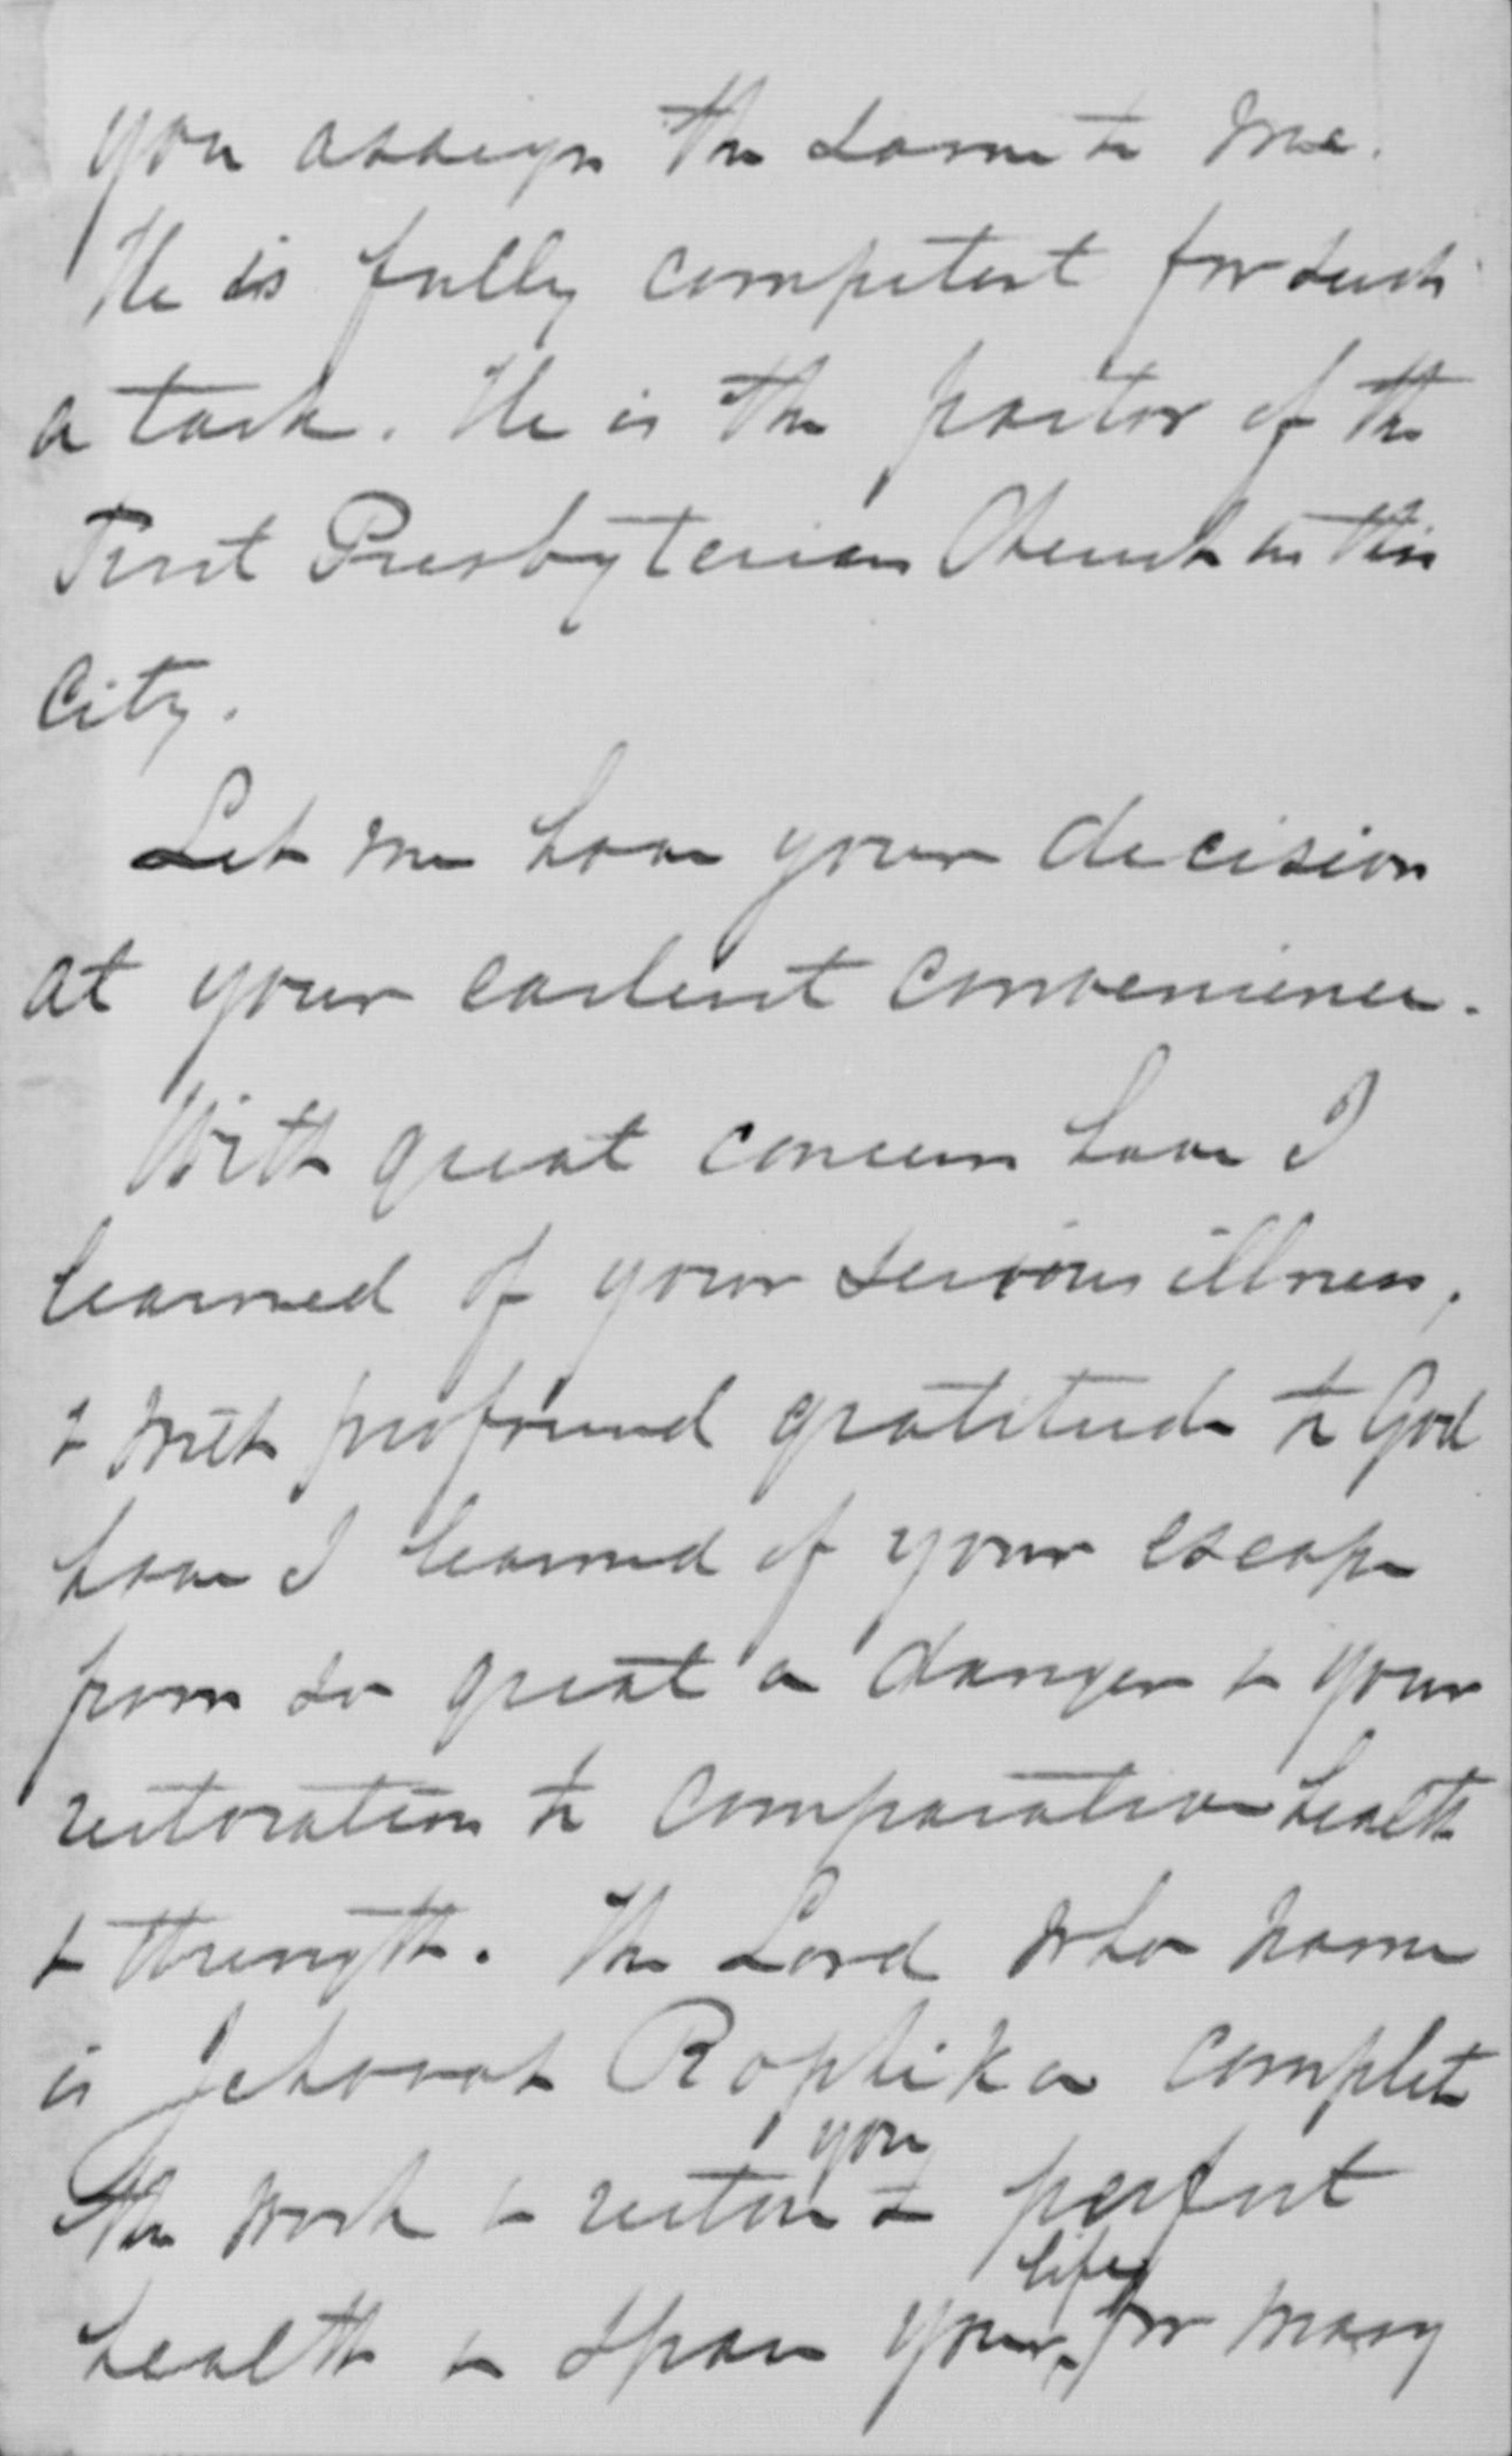 you assign the same to me.
He is fully competent for such
a task. He is the pastor of the
First Presbyterian Church in this
City.
Let me have your decision
at your earliest convenience.
With great concern have I
learned of your serious illness,
& with profound gratitude to God
have I learned of your escape
from so great a danger & your
restoration to comparative health
& strength. The Lord who name
is Jehovah Rophika complete
the work & restore you to perfect
health & spare your life for many